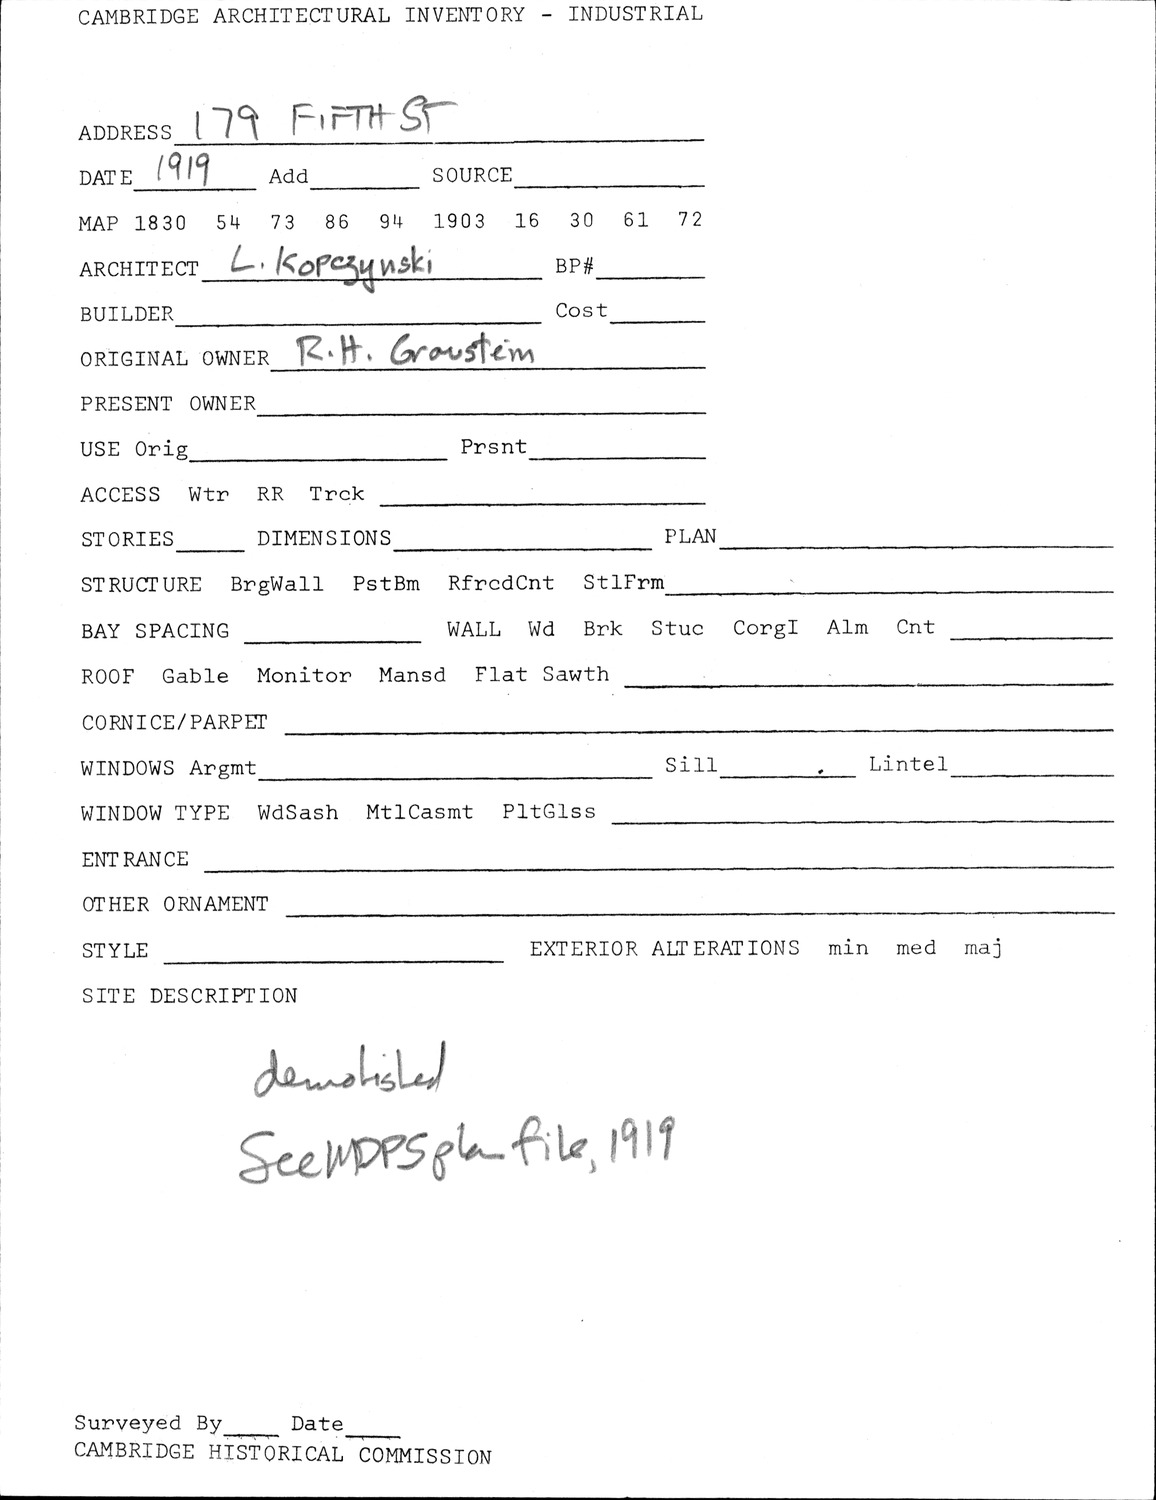 CAMBRIDGE ARCHITECTURAL INVENTORY - INDUSTRIAL
ADDRESS 179 FIFTH ST
DATE 1919 Add SOURCE
MAP 1830 54 73 86 94 1903 16 30 61 72
ARCHITECT L. Kopczynski BP#
BUILDER Cost
ORIGINAL OWNER R.H. Graustein
PRESENT OWNER
USE Orig Prsnt
ACCESS Wtr RR Trck
STORIES DIMENSIONS PLAN
STRUCTURE BrgWall PstBm RfrcdCnt StlFrm
BAY SPACING WALL Wd Brk Stuc CorgI Alm Cnt
ROOF Gable Monitor Mansd Flat Sawth
CORNICE/PARPET
WINDOWS Argmt Sill Lintel
WINDOW TYPE WdSash MtlCasmt PltGlss
ENTRANCE
OTHER ORNAMENT
STYLE EXTERIOR ALTERATIONS min med maj
SITE DESCRIPTION
demolished
See MDPS plan file, 1919
Surveyed By Date
CAMBRIDGE HISTORICAL COMMISSION